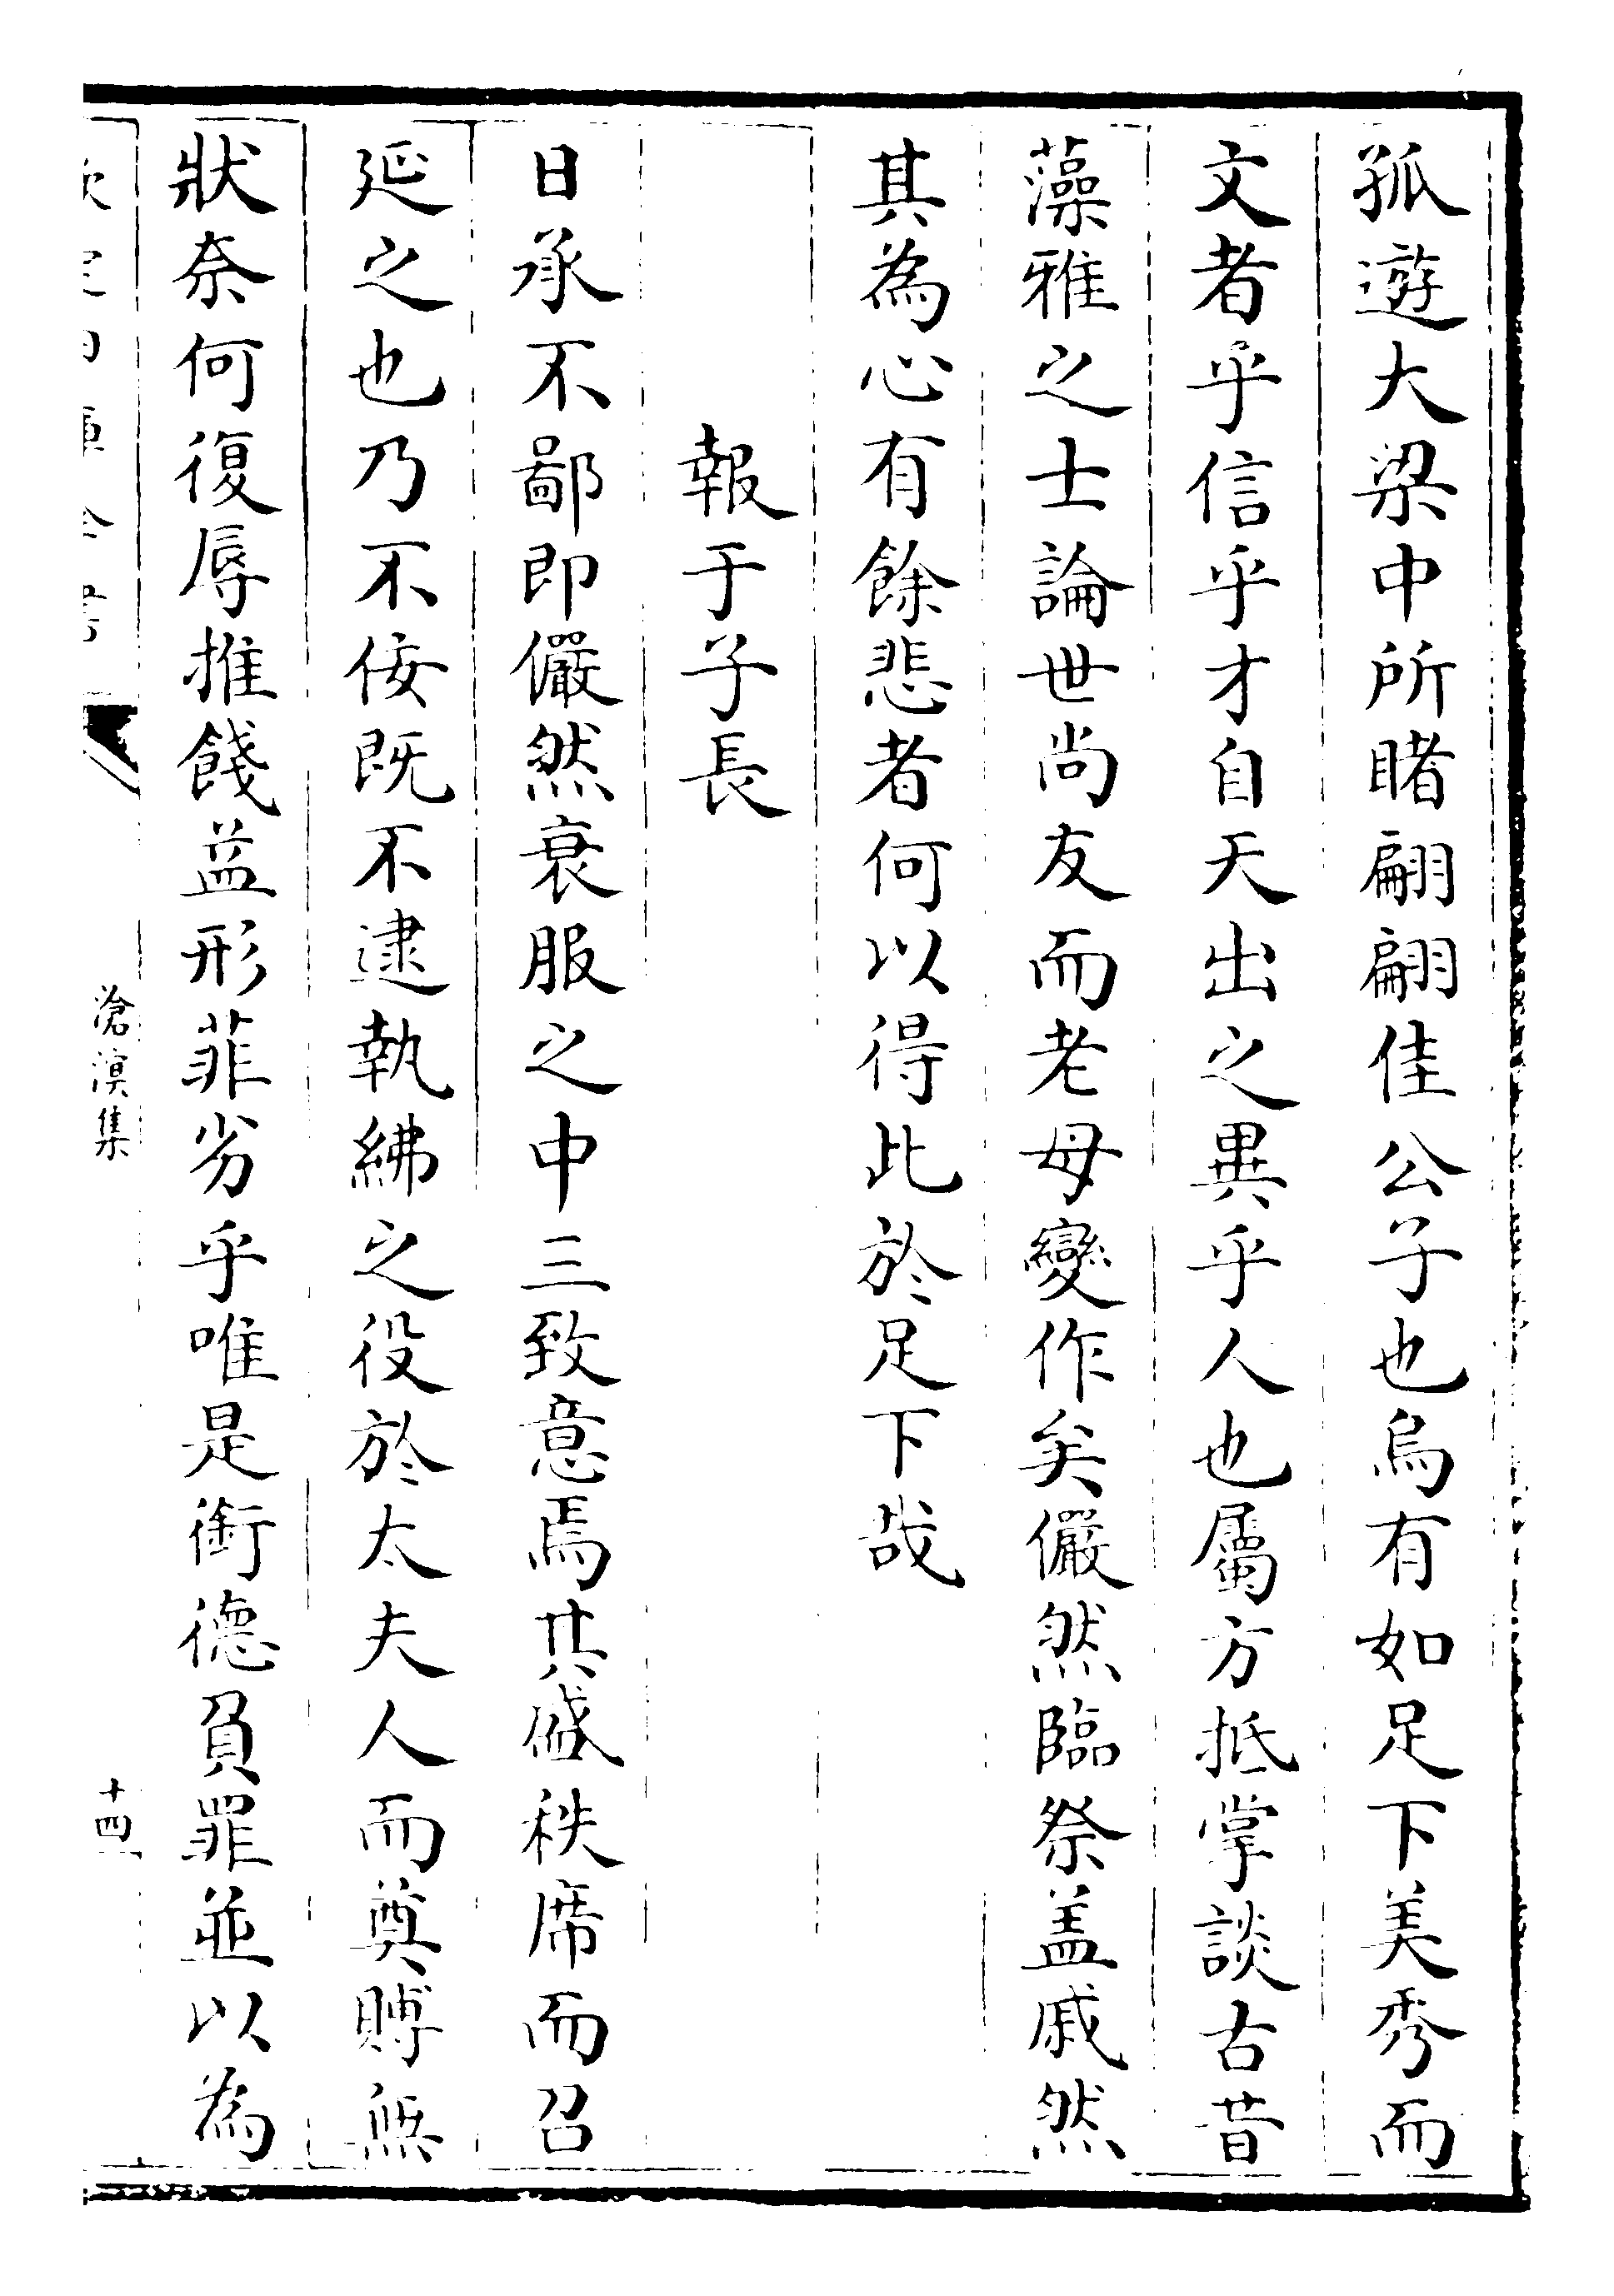 孤遊大梁中所睹翩翩佳公子也烏有如足下美秀而
文者乎信乎才自天出之異乎人也屬方抵掌談古昔
藻雅之士論世尚友而老母變作矣儼然臨祭盖戚然
其為心有餘悲者何以得此於足下哉
報于子長
日承不鄙即儼然衰服之中三致意焉其盛秩席而召
延之也乃不佞既不逮執紼之役於太夫人而奠賻無
狀奈何復辱推餞益形菲劣乎唯是銜德負罪並以為
欽定四庫全書
滄溟集
十四